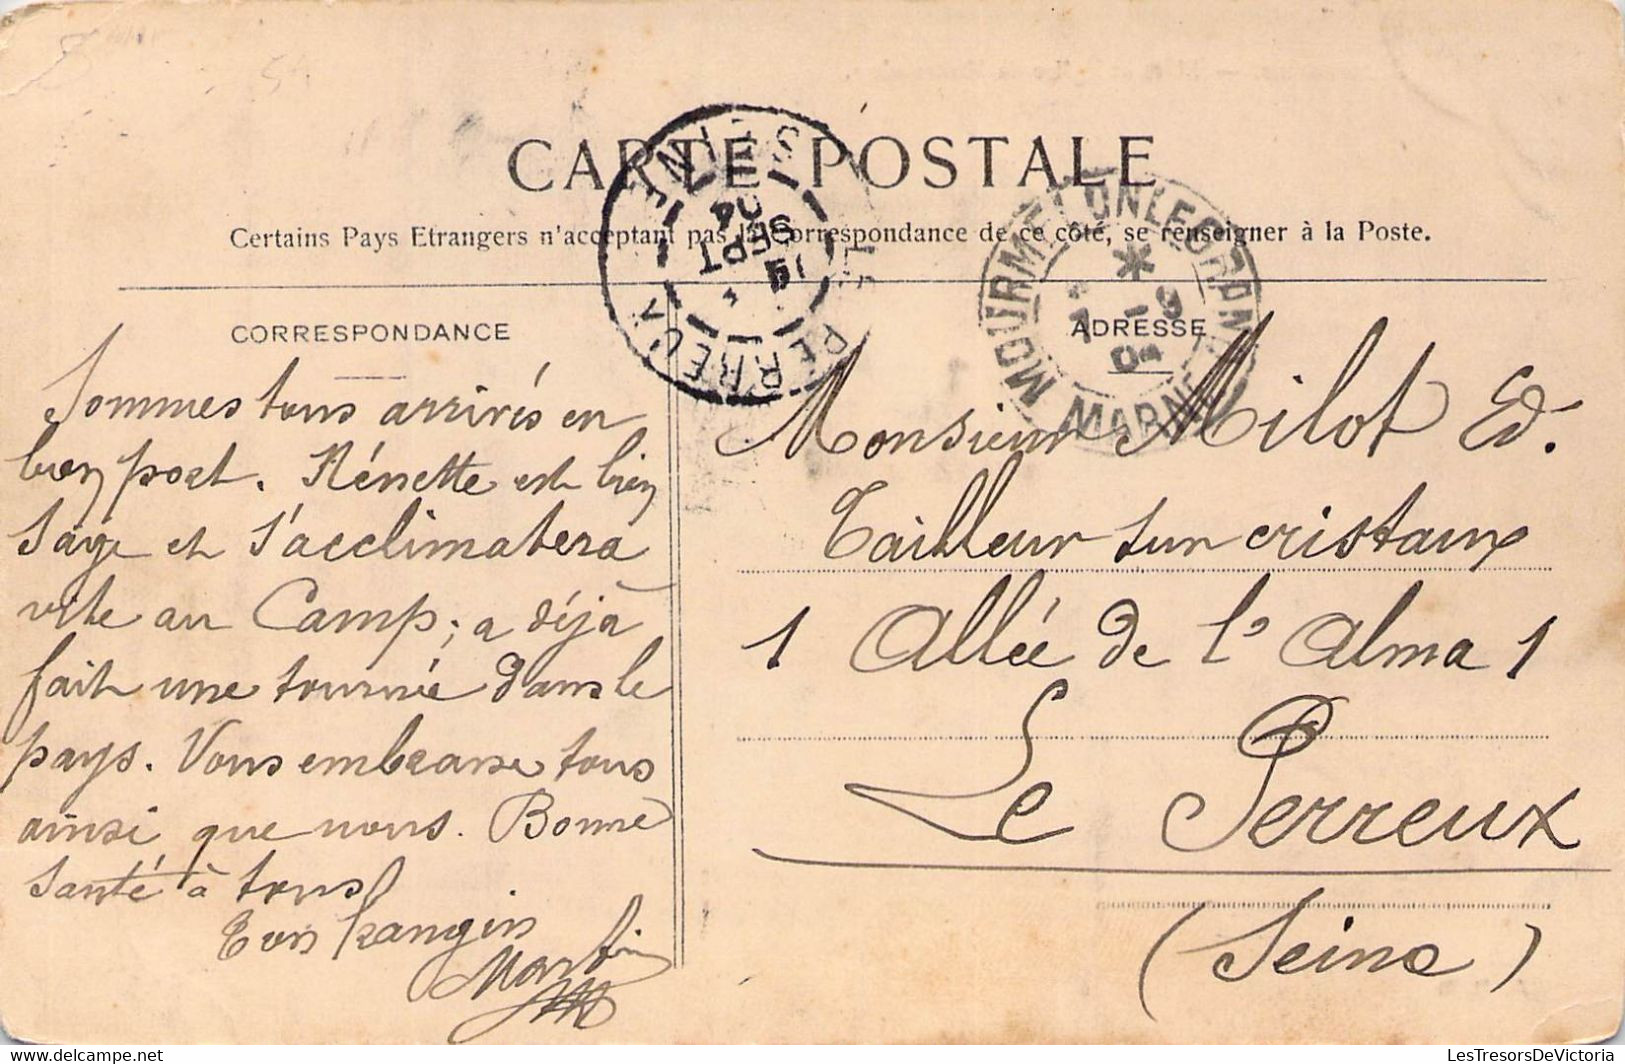 CARTE POSTALE
Certains Pays Etrangers n'acceptant pas la Correspondance de ce côté, se renseigner à la Poste.
LE PERREUX
SEPT
04
MOURMELON LE GRAND
MARNE
CORRESPONDANCE
Sommes tous arrivés en
bon port. Rénette est bien
sage et s'acclimatera
vite au Camp; a déjà
fait une tournée dans le
pays. Vous embrasse tous
ainsi que nous. Bonne
santé à tous
Ton frangin
Martin
ADRESSE
Monsieur Milot Ed.
Tailleur sur cristaux
1 Allée de l'Alma 1
Le Perreux
(Seine)
LesTresorsDeVictoria.com
LesTresorsDeVictoria